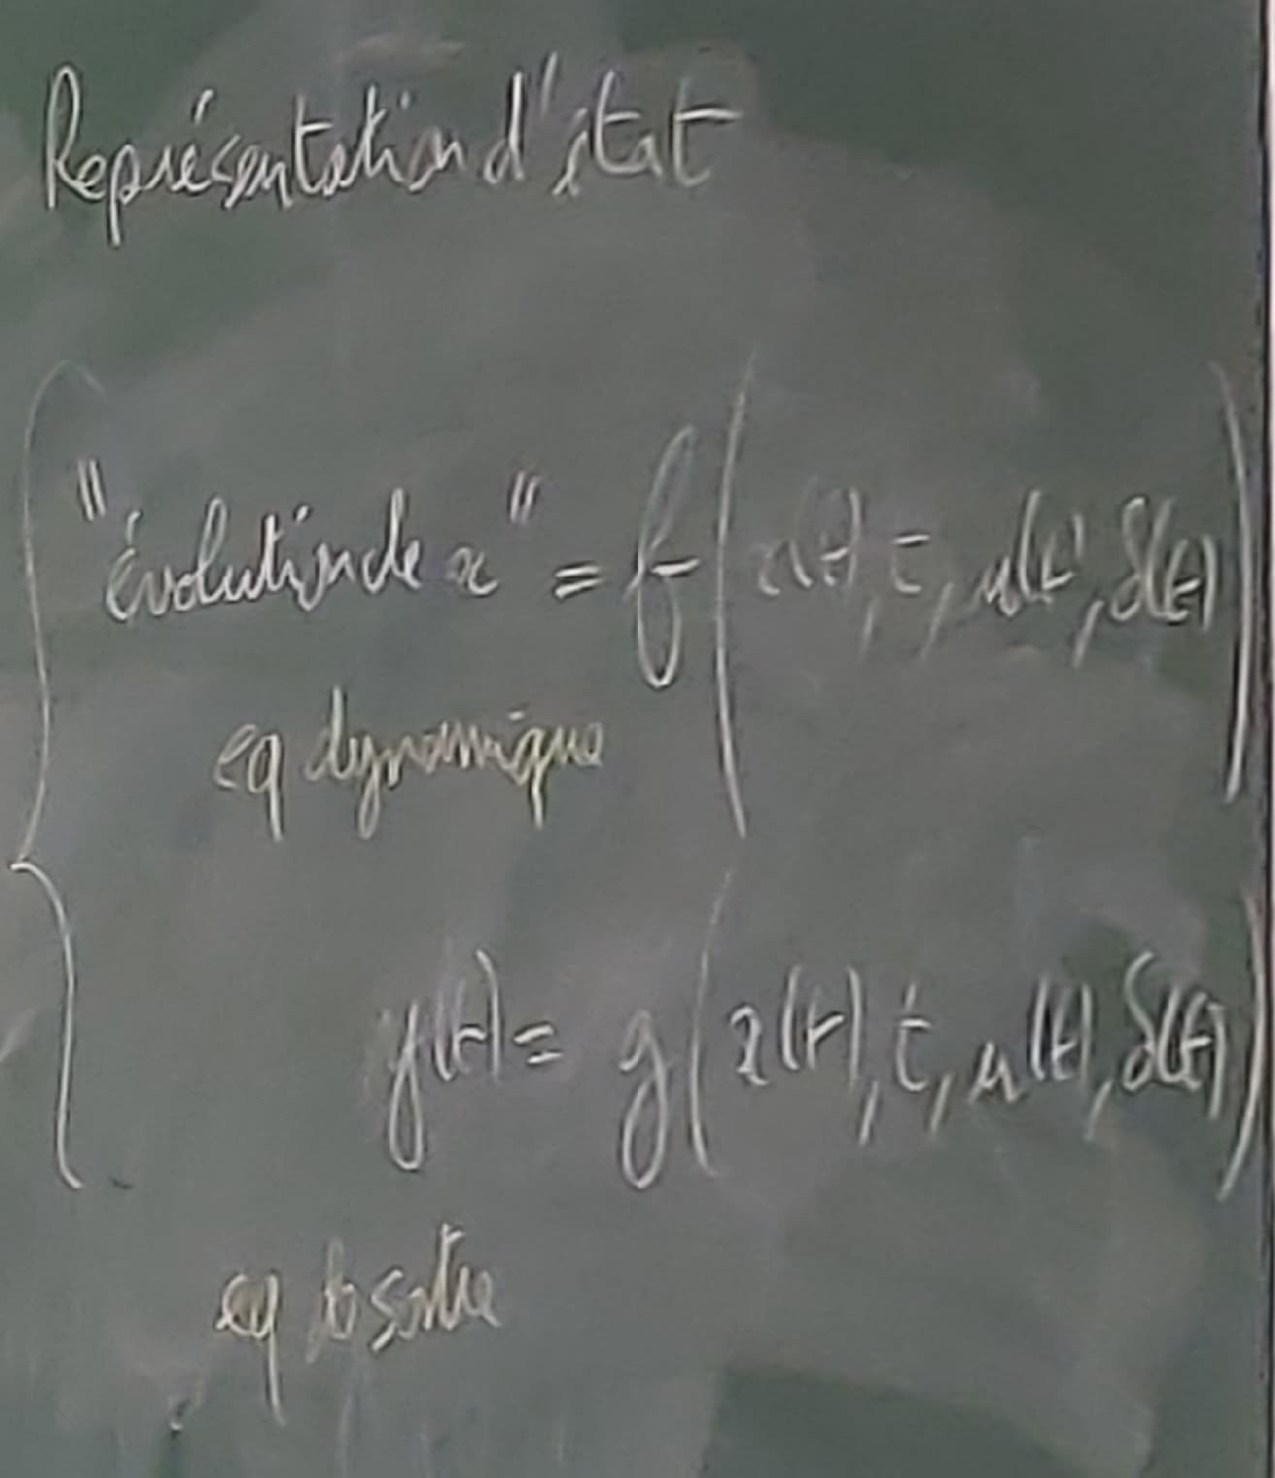 Représentation d'état
"évolution de x" = f(x(t), t, u(t), δ(t))
eq dynamique
y(t) = g(x(t), t, u(t), δ(t))
eq de sortie